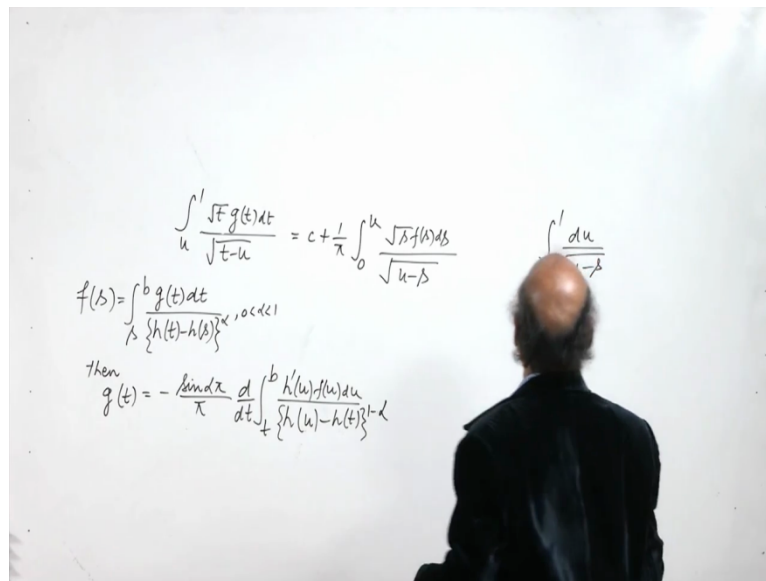 ∫_u^1 √t g(t)dt / √(t-u) = c + 1/π ∫_0^u √s f(s)ds / √(u-s)
∫^1 du / u-s
f(s) = ∫_s^b g(t)dt / {h(t)-h(s)}^α , 0<α<1
then
g(t) = - sin απ / π d/dt ∫_t^b h'(u)f(u)du / {h(u)-h(t)}^1-α